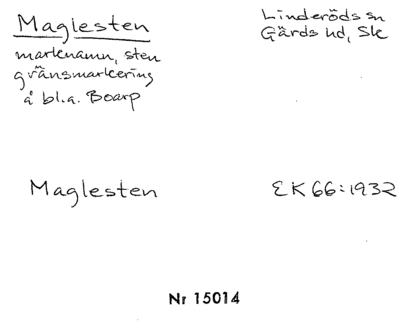 Maglesten
Linderöds sn
Gärds hd, Sk
marknamn, sten
gränsmarkering
å bl.a. Boarp
Maglesten
EK 66:1932
Nr 15014